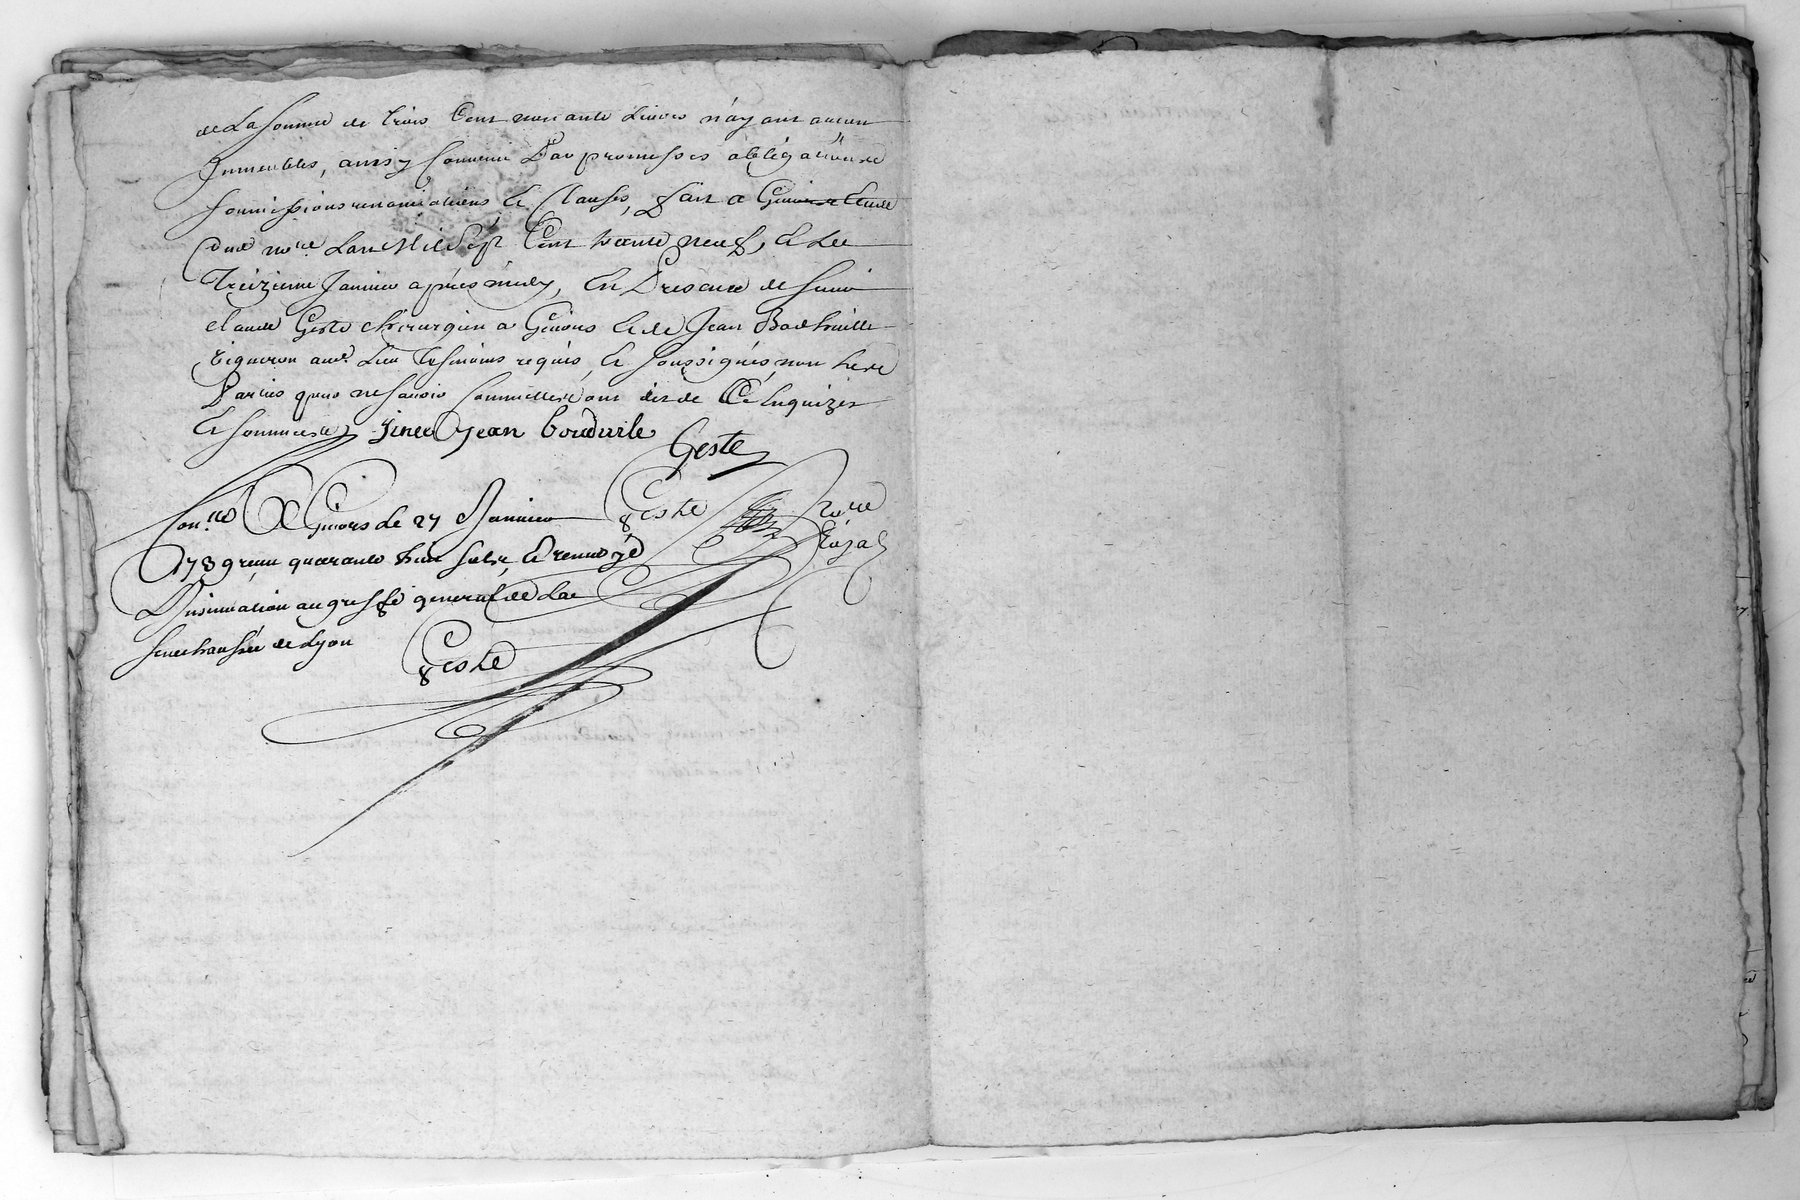 de La somme de trois Cent nonante Livres n'ayant aucun
Immeubles, ainsy Convenu Par promesses obligations
soumissions renonciations, Et Clauses, fait a Givors Etude
dud nore. L'an Mil Sept Cent trente neuf, Et Le
Treizieme Janvier après midy, En Presence de sieur
claude Geste chirurgien a Givors Et de Jean Bodhuille
vigneron aud. Lieu tesmoins requis, Et soussignés, non Les
Parties pour ne savoir comme elles ont dit de Ce Enquizes
Et sommées
Jean bouduile
Geste
Con.llé A Givors Le 27 Janvier
1739 reçu quarante huit sols, Et renvoyé
L'Insinuation au greffe general de La
senechaussée de Lyon
Geste
Geste
No.re
Royal